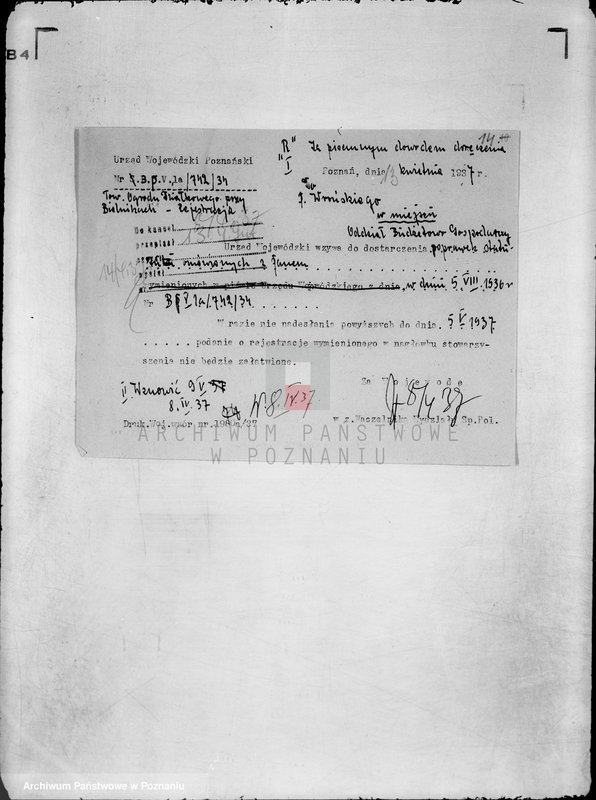 B4
14
"R" Za piśmiennym dowodem doręczenia
"I"
Urząd Wojewódzki Poznański
Poznań, dnia 13 kwietnia 1937 r.
Nr B.P.V.1a/742/34
Tow. Ogrodu Działkowego przy
Bielnikach - rejestracja
Do
J. Wrońskiego
w miejscu
Oddział Budżetowo Gospodarczy
Do kancel.
przepisał
Urząd Wojewódzki wzywa do dostarczenia poprawek statu-
omówionych z Panem
wymienionych w piśmie Urzędu Wojewódzkiego z dnia w dniu 5.VIII.1936 r
Nr BPV 1a/742/34
W razie nie nadesłania powyższych do dnia. 5 V 1937
podanie o rejestrację wymienionego w nagłówku stowarzy-
szenia nie będzie załatwione.
Za Wojewodę
II. Wznowić 9 V 37
8.IV.37
8 IV.37
8/4 37
Druk.Woj.wzór nr.1980a/37
w z. Naczelnika Wydziału Sp.Pol.
ARCHIWUM PAŃSTWOWE
W POZNANIU
Archiwum Państwowe w Poznaniu